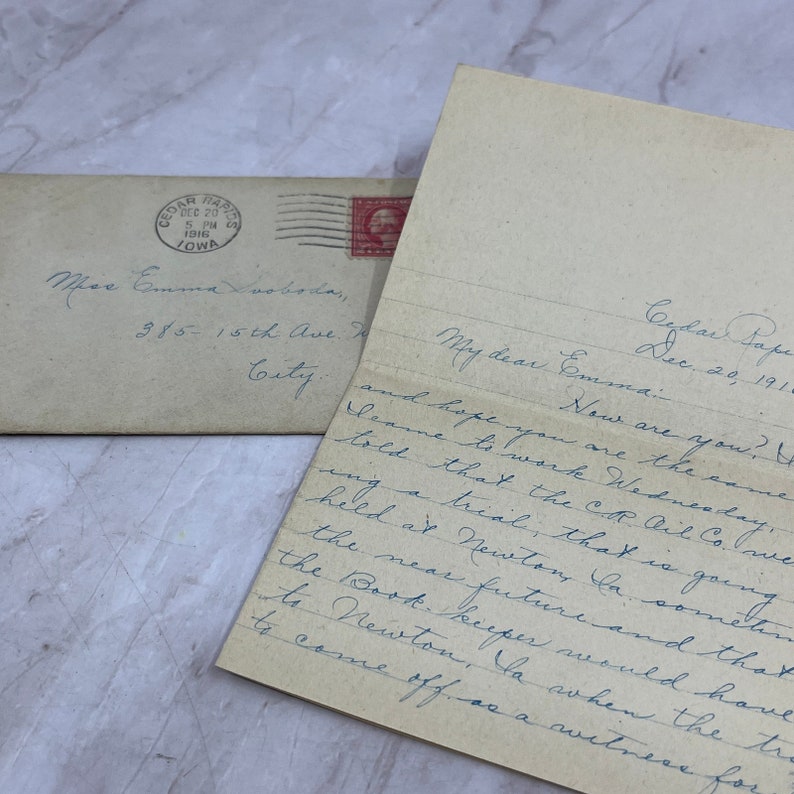 CEDAR RAPIDS
DEC 20
5 PM
1916
IOWA
Miss Emma Svoboda,
385 - 15th Ave
City.
Cedar
Dec. 20, 191
My dear Emma:
How are you?
and hope you are the same
I came to work Wednesday,
told that the C.R. Oil Co. we
ing a trial, that is going
held at Newton, Ia. sometim
the near future and that
the Book-keeper would have
to Newton, Ia when the tr
to come off as a witness for